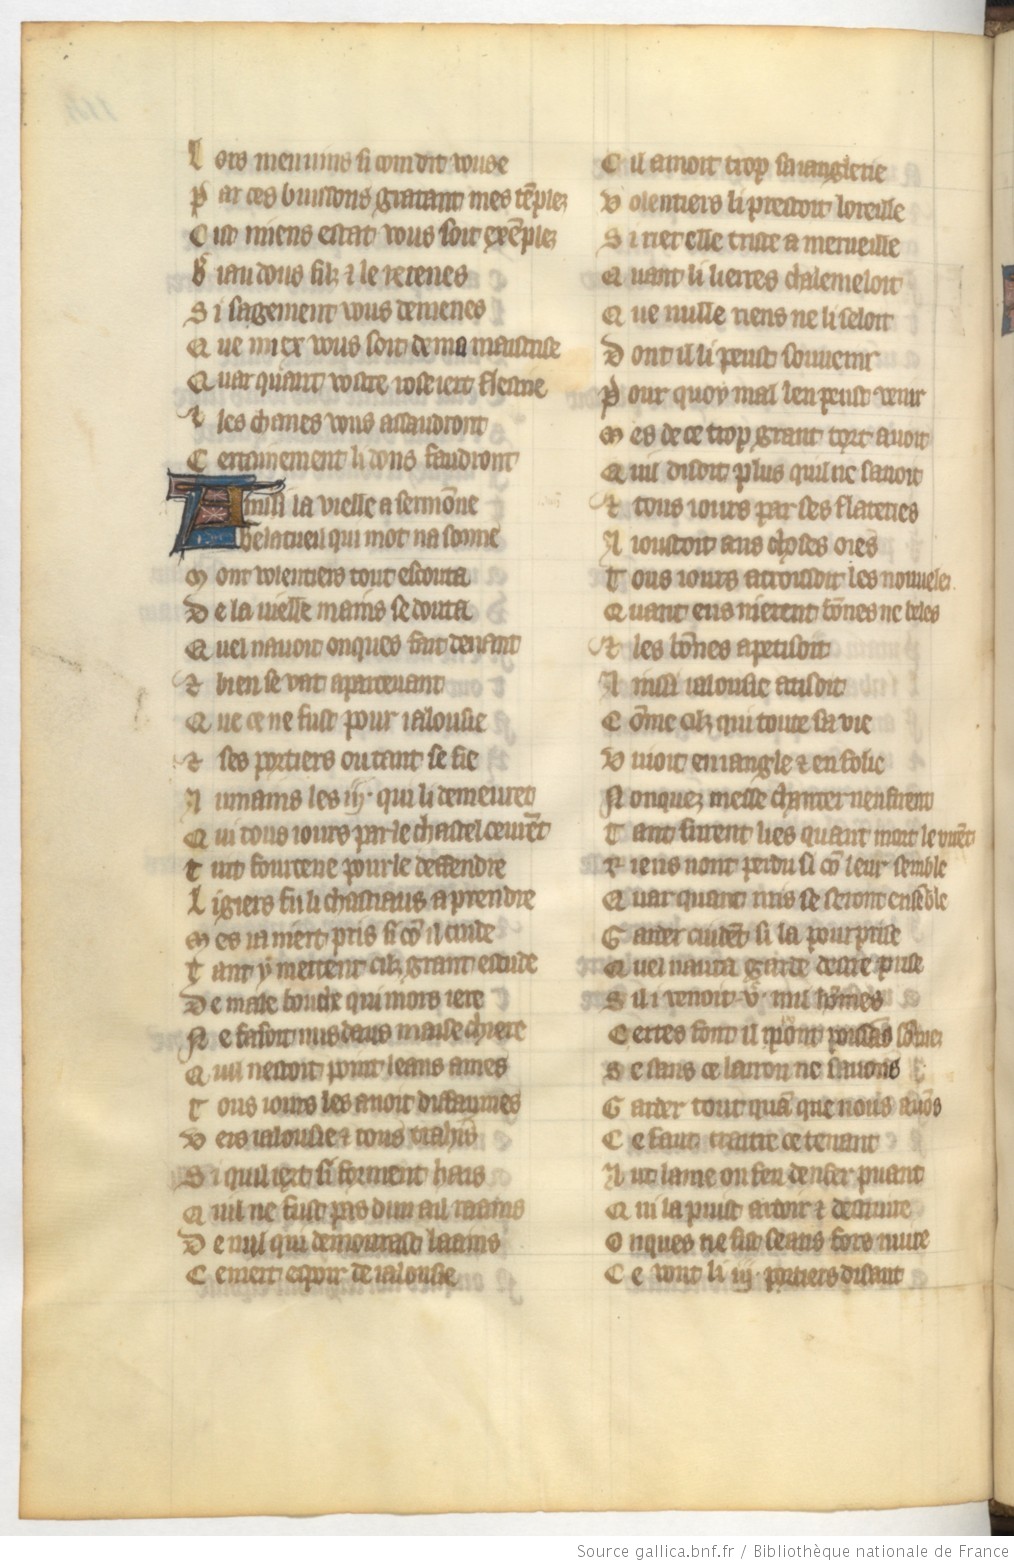 L ors menuins si com dit vous e
P ar ces buissons gratant mes tẽples
C ist miens estat vous soit exẽples
B iau dous filz ⁊ le retenes
S i sagement vous demenes
Q ue miex vous soit de ma maistrise
Q uar quant vostre rose iert flestrie
⁊ les chanes vous assaudront
C ertainement li dons faudront
A insi la vielle a sermõne
Belacueil qui mot na sonne
M out volentiers tout escouta
D e la vielle mains se douta
Q uel navoit onques fait devant
⁊ bien se vat apercevant
Q ue ce ne fust pour ialousie
⁊ ses portiers ou tant se fie
A umains les iij. qui li demeurẽt
Q ui tous iours par le chastel ceurẽt
T uit forcene pour le deffendre
L igiers fu li chastiaus a prendre
M es ia niert pris si cõ il cuide
T ant y mettent cilz grant estude
D e male bouche qui mors iere
N e fasoit nus daus maise chiere
Q uil nestoit point leans ames
T ous iours les avoit diffammes
V ers ialousie ⁊ tous trahis
S i quil iert si forment hais
Q uil ne fust pas dun ail raains
D e nul qui demourast laiens
C e niert espoir de ialousie
C il amoit trop sa ianglerie
V olentiers li prestoit loreille
S i riert elle triste a merveille
Q uant li lierres chalemeloit
Q ue nulle riens ne li seloit
D ont il li peust souvenir
P our quoy mal len peust venir
M es de ce trop grant tort avoit
Q uil disoit plus quil ne savoit
⁊ tous iours par ses flateries
A ioustoit aus choses oies
T ous iours acroissoit les nouveles
Q uant eus nierent bõnes ne beles
⁊ les bõnes apetisoit
A insi ialousie atisoit
C õme cilz qui toute sa vie
V sioit en iangle ⁊ en folie
N onquez messe chanter nen firent
T ant furent lies quant mort le virẽt
R iens nont perdu si cõ leur semble
Q uar quant mis se seront ensẽble
G arder cuidẽt si la pourprise
Q uel naura garde destre prise
S il i venoit .v. mil hõmes
C ertes font il
S e sans ce larron ne savons
G arder tout quã que nous avõs
C e faus traitre ce tenant
A it lame ou feu denfer puant
Q ui la puist ardoir ⁊ destruire
O nques ne fist seans fors nuire
C e vont li iij. portiers disant